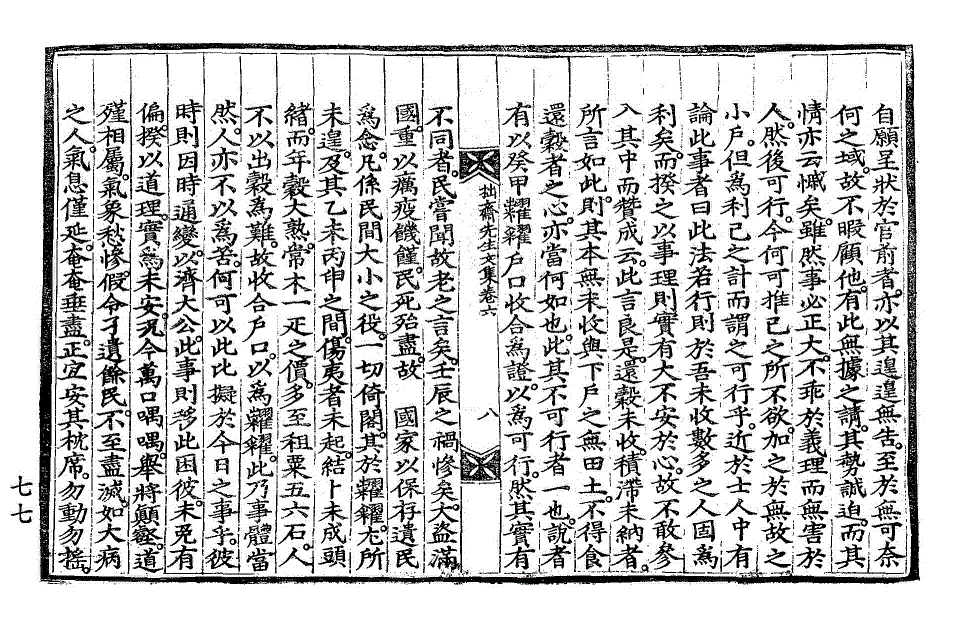 自願呈狀於官前者。亦以其遑遑無告。至於無可奈
何之域。故不暇顧他。有此無據之請。其勢誠迫。而其
情亦云慽矣。雖然事必正大。不乖於義理而無害於
人。然後可行。今何可推己之所不欲。加之於無故之
小戶。但為利己之計而謂之可行乎。近於士人中有
論此事者曰此法若行則於吾未收數多之人固為
利矣。而揆之以事理則實有大不安於心。故不敢參
入其中而贊成云。此言良是。還穀未收積滯未納者。
所言如此。則其本無未收與下戶之無田土。不得食
還穀者之心。亦當何如也。此其不可行者一也。說者
有以癸甲糶糴戶口收合為證。以為可行。然其實有
拙齋先生文集卷六
八
不同者。民嘗聞故老之言矣。壬辰之禍慘矣。大盜滿
國重以癘疫饑饉。民死殆盡。故 國家以保存遺民
為念。凡係民間大小之役。一切倚閣。其於糶糴。尤所
未遑。及其乙未丙申之間。傷夷者未起。結卜未成頭
緒。而年穀大熟。常木一疋之價。多至租粟五六石。人
不以出穀為難。故收合戶口。以為糶糴。此乃事體當
然。人亦不以為苦。何可以此比擬於今日之事乎。彼
時則因時通變。以濟大公。此事則移此困彼。未免有
偏。揆以道理。實為未安。況今萬口喁喁。擧將顚壑。道
殣相屬。氣象愁慘。假令孑遺餘民。不至盡滅。如大病
之人。氣息僅延。奄奄垂盡。正宜安其枕席。勿動勿搖。
七七